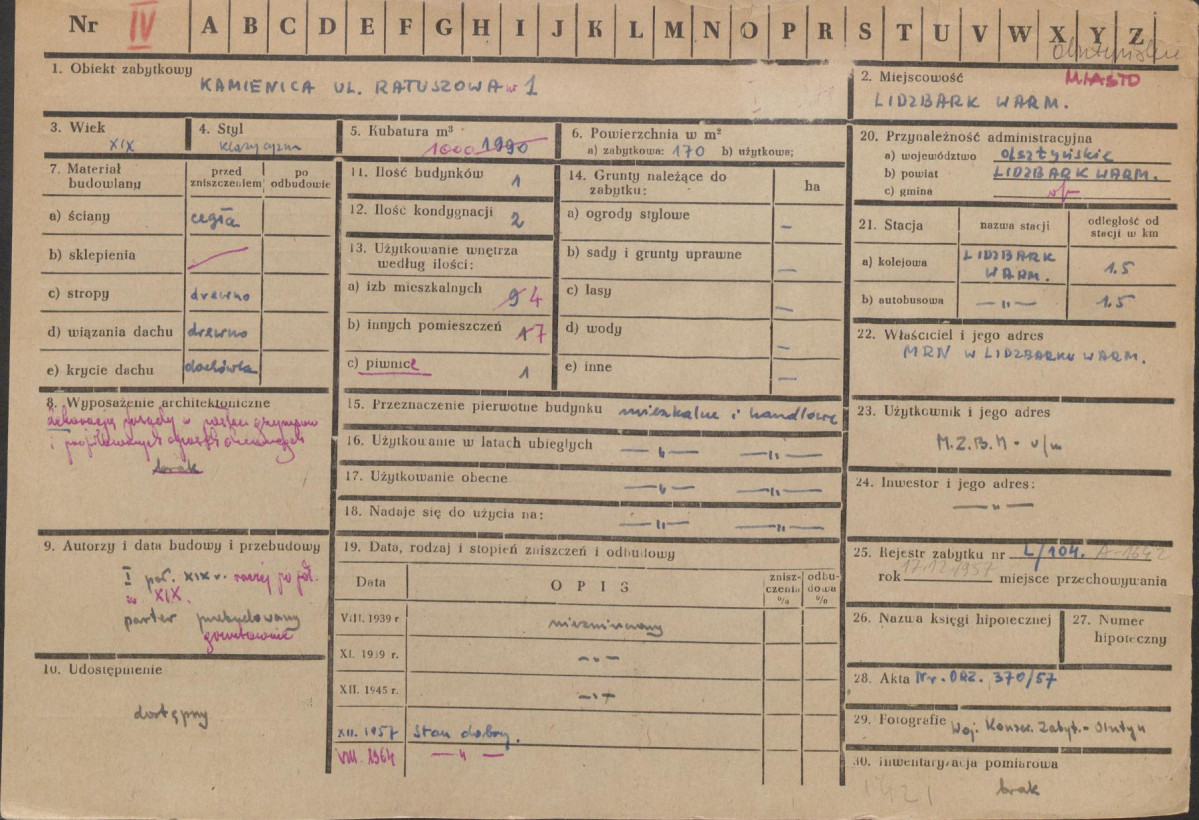 Nr IV A B C D E F G H I J K L M N O P R S T U V W X Y Z
olsztyńskie
1. Obiekt zabytkowy
KAMIENICA UL. RATUSZOWA nr 1
2. Miejscowość MIASTO
LIDZBARK WARM.
3. Wiek
XIX
4. Styl
klasycyzm
5. Kubatura m³
1000 1990
6. Powierzchnia w m²
a) zabytkowa: 170 b) użytkowa;
7. Materiał budowlany
przed zniszczeniem
po odbudowie
a) ściany cegła
b) sklepienia
c) stropy drewno
d) wiązania dachu drewno
e) krycie dachu dachówka
8. Wyposażenie architektoniczne
dekoracja fasady w
i profilowanych
brak
9. Autorzy i data budowy i przebudowy
I poł. XIX w. raczej po poł.
w XIX.
parter przebudowany
gruntownie
10. Udostępnienie
dostępny
11. Ilość budynków 1
12. Ilość kondygnacji 2
13. Użytkowanie wnętrza
według ilości:
a) izb mieszkalnych 9 4
b) innych pomieszczeń 1 7
c) piwnice 1
14. Grunty należące do
zabytku:
ha
a) ogrody stylowe –
b) sady i grunty uprawne –
c) lasy –
d) wody –
e) inne –
15. Przeznaczenie pierwotne budynku mieszkalne i handlowe
16. Użytkowanie w latach ubiegłych —"— —"—
17. Użytkowanie obecne —"— —"—
18. Nadaje się do użycia na: —"— —"—
19. Data, rodzaj i stopień zniszczeń i odbudowy
Data
OPIS
znisz-
czenia
%
odbu-
dowa
%
VIII. 1939 r niezniszczony
XI. 1939 r. —"—
XII. 1945 r. —"—
XII. 1957 stan dobry.
VIII. 1964 —"—
20. Przynależność administracyjna
a) województwo olsztyńskie
b) powiat LIDZBARK WARM.
c) gmina
21. Stacja
nazwa stacji
odległość od
stacji w km
a) kolejowa LIDZBARK WARM. 1.5
b) autobusowa —"— 1.5
22. Właściciel i jego adres
MRN W LIDZBARKU WARM.
23. Użytkownik i jego adres
M.Z.B.M - v/m
24. Inwestor i jego adres:
—"—
25. Rejestr zabytku nr L/104. A-1642
rok 17.12.1957 miejsce przechowywania
26. Nazwa księgi hipotecznej
27. Numer
hipoteczny
28. Akta Nr. ORZ. 370/57
29. Fotografie Woj. Konser. Zabyt. - Olsztyn
30. Inwentaryzacja pomiarowa
brak
1421